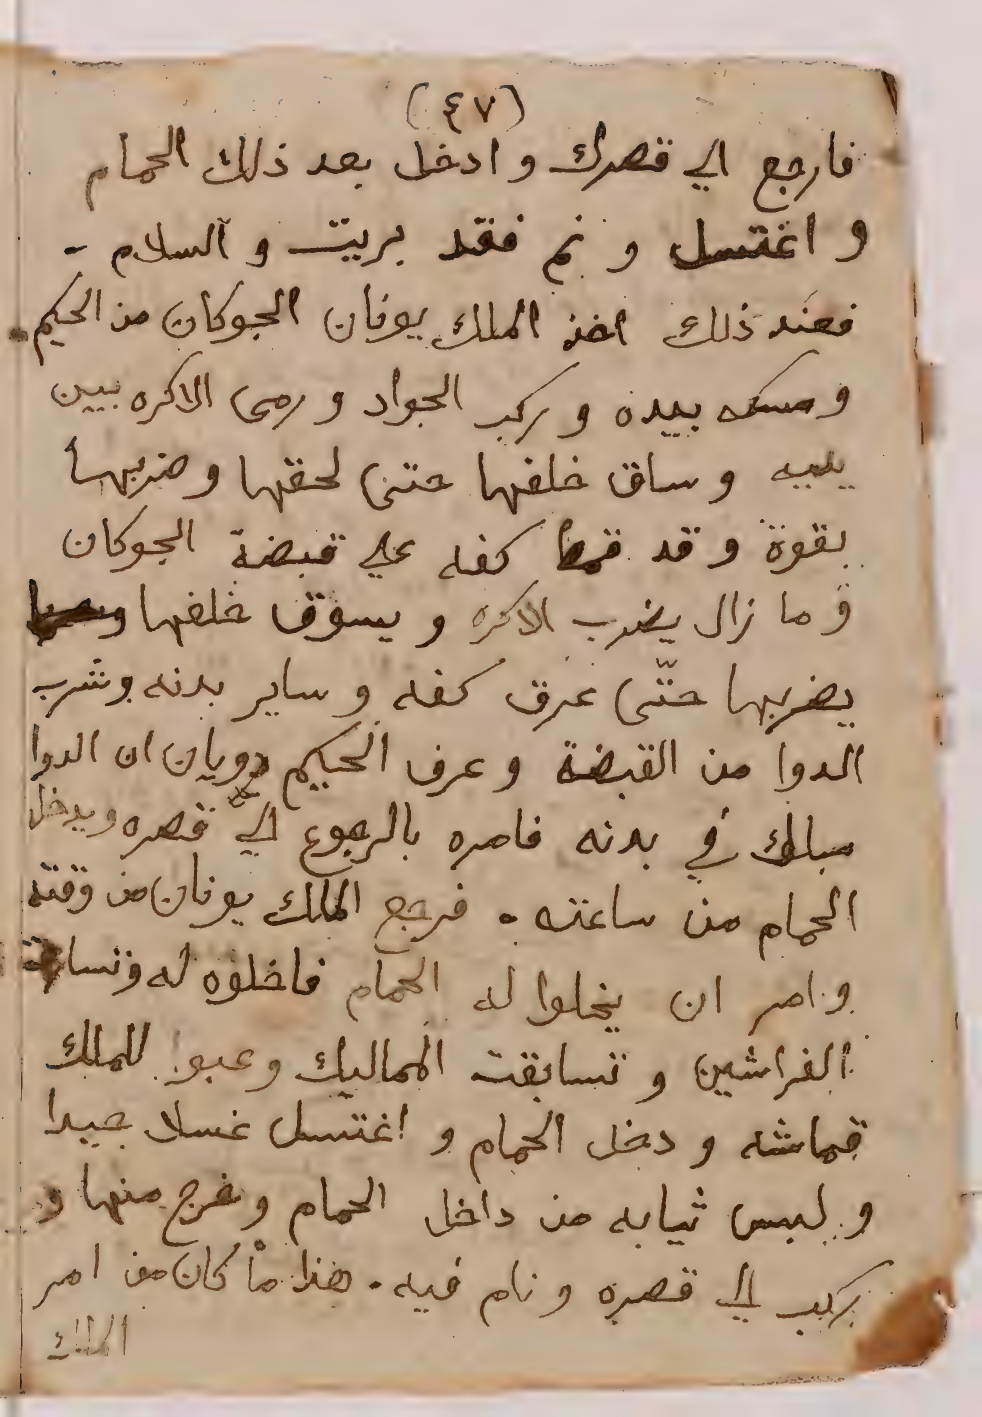 (٤٧)
فارجع الي قصرك و ادخل بعد ذلك الحمام
و اغتسل و نم فقد بريت و السلام -
فعند ذلك اخذ الملك يونان الجوكان من الحكيم
ومسكه بيده و ركب الجواد و رمى الاكره بين
يديه و ساق خلفها حتى لحقها وضربها
بقوة و قد قبض كفه علي قبضة الجوكان
و ما زال يضرب الاكره و يسوق خلفها
يضربها حتّى عرق كفه و ساير بدنه وشرب
الدوا من القبضة و عرف الحكيم دويان ان الدوا
سلك في بدنه فامره بالرجوع الي قصره ويدخل
الحمام من ساعته . فرجع الملك يونان من وقته
و امر ان يخلوا له الحمام فاخلوه له وتسارعت
الفراشين و تسابقت المماليك وعبوا للملك
قماشه و دخل الحمام و اغتسل غسلا جيدا
و لبس ثيابه من داخل الحمام وخرج منها و
ركب الي قصره و نام فيه . هذا ما كان من امر
الملك